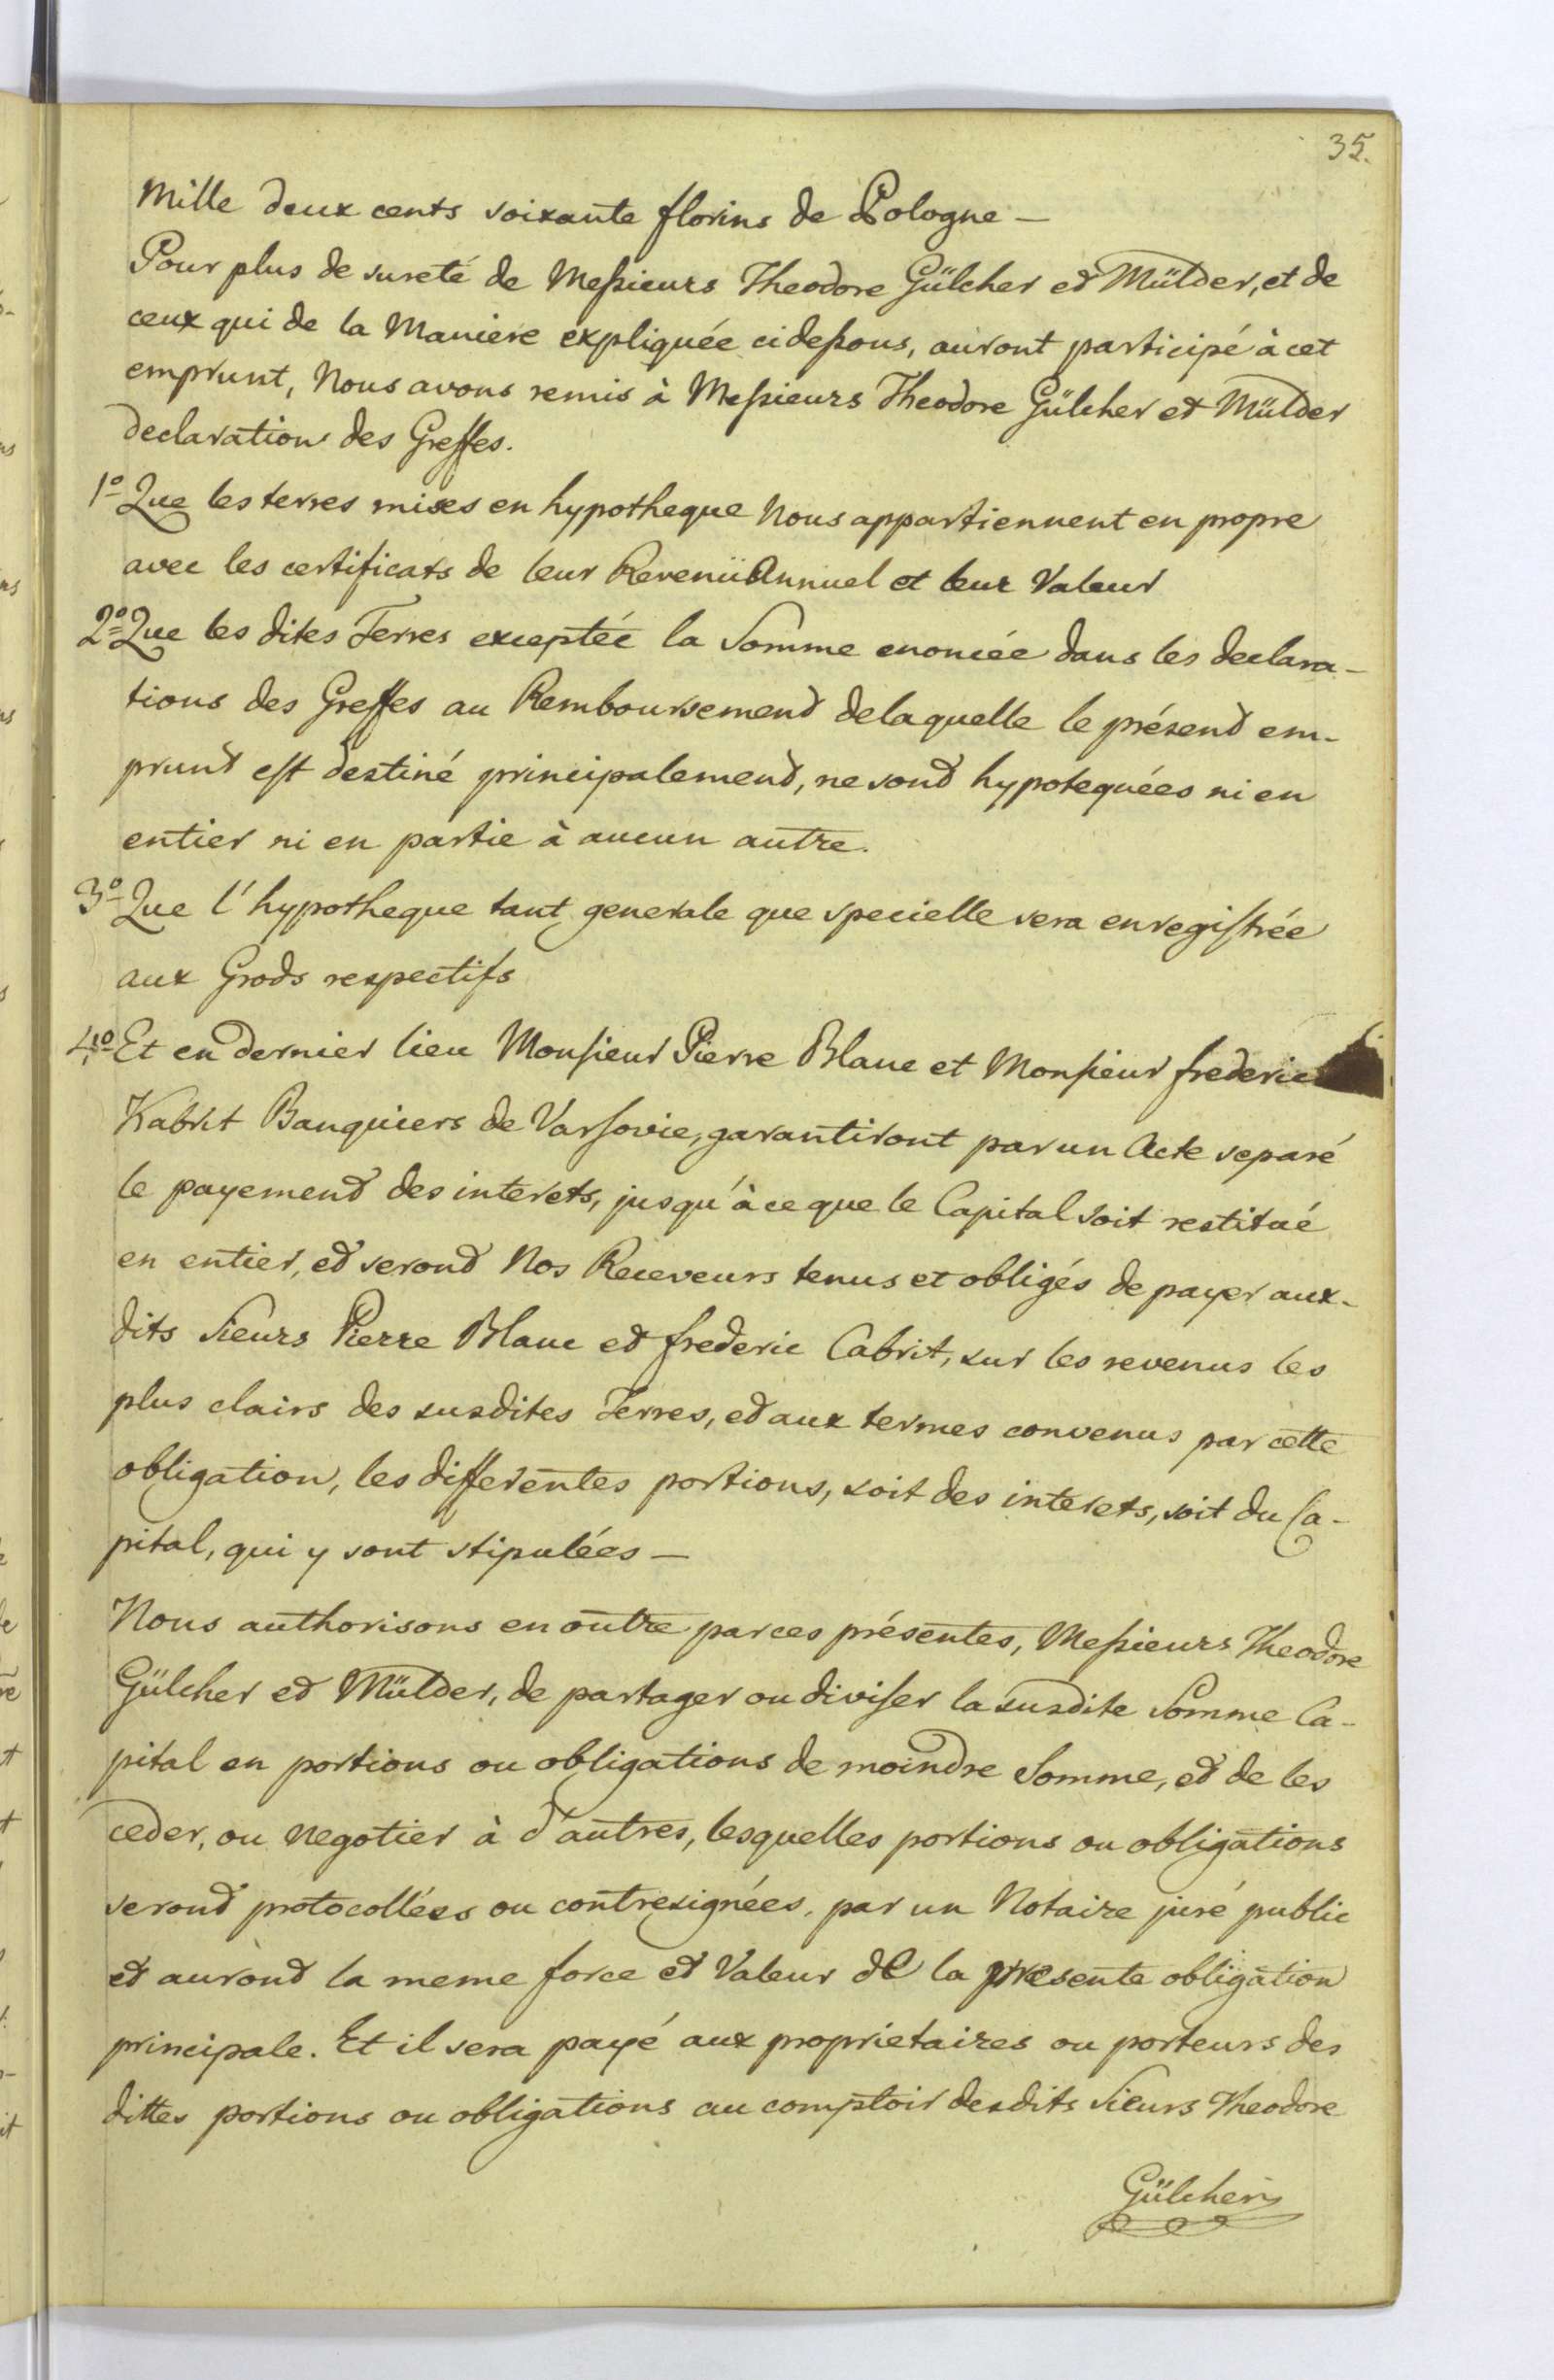 35.
Mille deux cents soixante florins de Pologne —
Pour plus de sureté de Messieurs Theodore Gülcher et Mülder, et de
ceux qui de la Maniere expliquée cidessous, auront participé à cet
emprunt, Nous avons remis à Messieurs Theodore Gülcher et Mülder
declarations des Greffes.
1º Que les terres mises en hypotheque Nous appartiennent en propre
avec les certificats de leur Revenü Annuel et leur Valeur
2º Que les dites Terres exceptée la Somme enoncée dans les declara-
tions des Greffes au Remboursement delaquelle le présent em-
prunt est destiné principalement, ne sont hypotequées ni en
entier ni en partie à aucun autre.
3º Que l'hypotheque tant generale que specielle sera enregistrée
aux Grods respectifs
4º Et en dernier lieu Monsieur Pierre Blanc et Monsieur frederic
Kabrit Banquiers de Varsovie, garantiront par un Acte separé
le payement des interets, jusqu'à ce que le Capital soit restitué
en entier, et seront Nos Receveurs tenus et obligés de payer aux-
dits Sieurs Pierre Blanc et frederic Cabrit, sur les revenus les
plus clairs des susdites Terres, et aux termes convenus par cette
obligation, les differentes portions, soit des interets, soit du Ca-
pital, qui y sont stipulées —
Nous authorisons en outre par ces présentes, Messieurs Theodore
Gülcher et Mülder, de partager ou diviser la susdite Somme Ca-
pital en portions ou obligations de moindre Somme, et de les
ceder, ou negotier à d'autres, lesquelles portions ou obligations
seront protocollées ou contresignées, par un Notaire juré public
et auront la meme force et Valeur de la presente obligation
principale. Et il sera payé aux proprietaires ou porteurs des
dittes portions ou obligations au comptoir desdits Sieurs Theodore
Gülcher